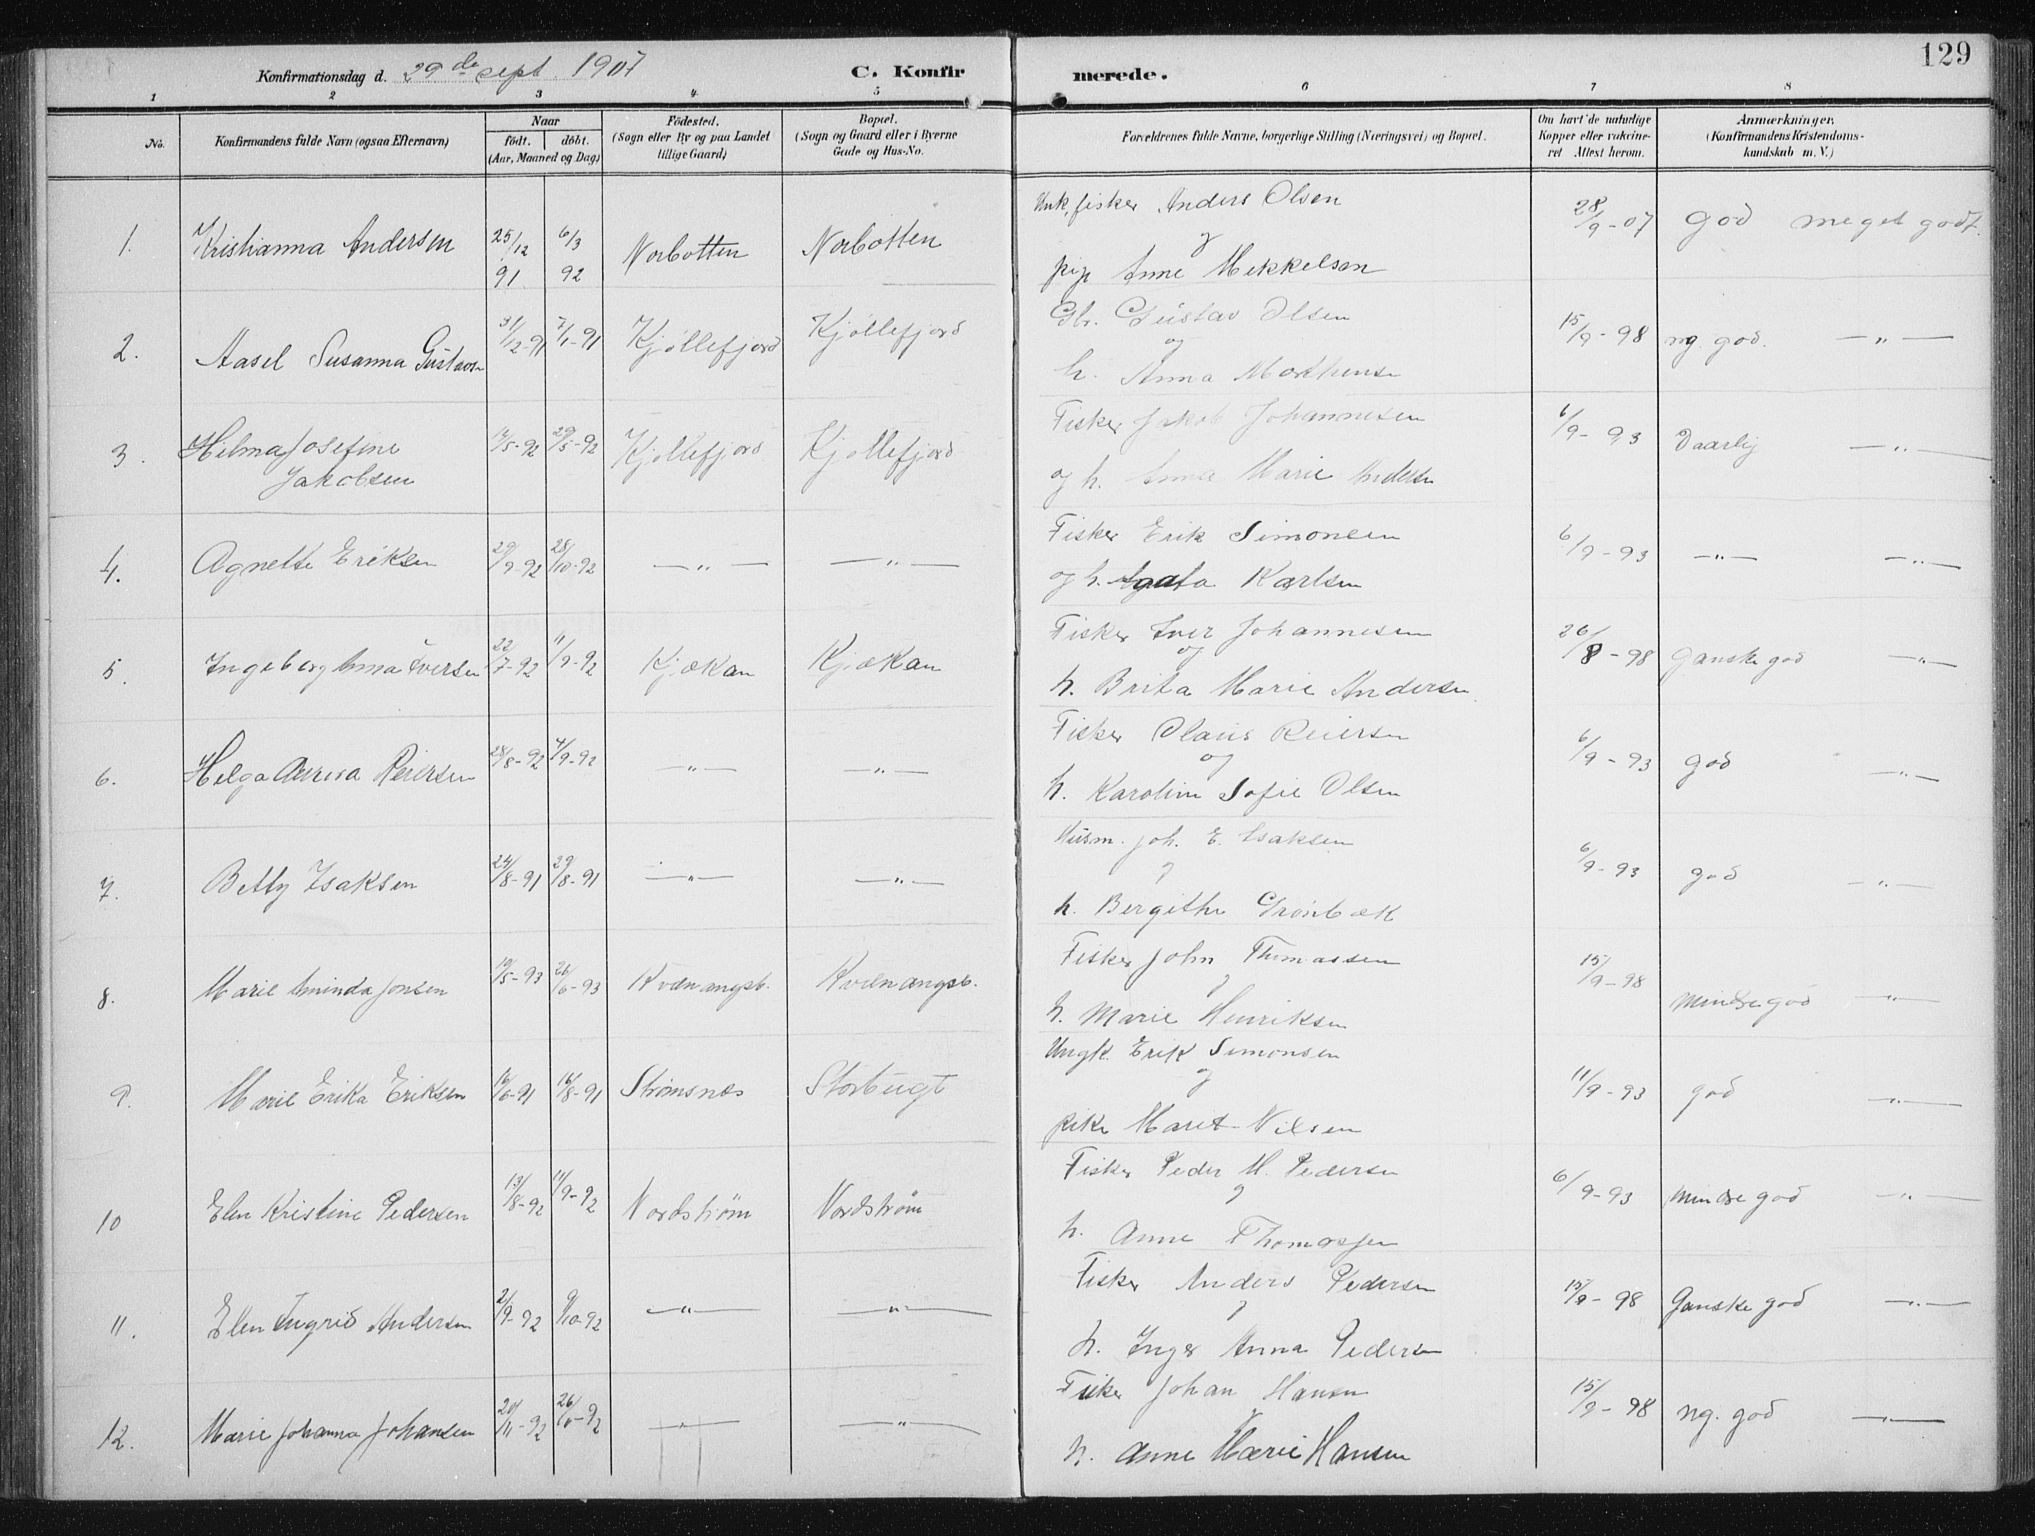 129
Konfirmationsdag d. 29de sept. 1907 C. Konfirmerede.
1 2 3 4 5 6 7 8
No. Konfirmandens fulde Navn (ogsaa Efternavn) Naar født. døbt. (Aar, Maaned og Dag) Fødested. (Sogn eller By og paa Landet tillige Gaard) Bopæl. (Sogn og Gaard eller i Byerne Gade og Hus-No. Forældrenes fulde Navne, borgerlige Stilling (Næringsvei) og Bopæl. Om havt de naturlige Kopper eller vakcineret Attest herom. Anmærkninger. (Konfirmandens Kristendomskundskab m. V.)
1. Kristianna Andersen 25/12 91 6/3 92 Norbotten Norbotten fisker Anders Olsen 28/9-07 god meget godt.
og
pige Anne Mikkelsen
2. Aasel Susanna Gustavsen 31/12-91 7/1-91 Kjøllefjord Kjøllefjord Gbr. Gustav Olsen 15/9-98 ng. god. —"—
og
h. Anna Morthense
3. Hilma Josefine Jakobsen 14/5-92 29/5-92 Kjøllefjord Kjøllefjord Fisker Jakob Johannesen 6/9-93 Daarlig —"—
og h. Anna Marie Andersen
4. Agnette Eriksen 29/9-92 28/10-92 —"— —"— Fisker Erik Simonsen 6/9-93 —"— —"—
og h. Agata Karlsen
5. Ingeberg Anna Iversen 22/7-92 11/9-92 Kjækan Kjækan Fisker Iver Johannesen 26/8-98 Ganske god —"—
og
h. Brita Marie Andersen
6. Helga Reiersen 28/8-92 4/9-92 —"— —"— Fisker Olaus Reiersen 6/9-93 god —"—
og
h. Karoline Sofie Olsen
7. Betty Isaksen 24/8-91 29/8-91 —"— —"— Husm. Joh. E. Isaksen 6/9-93 god —"—
og
h. Bergithe Grønbæk
8. Marie Aminda Jonsen 19/5-93 26/6-93 Kvænangsb. Kvænangsb. Fisker John Thomassen 15/9-98 mindre god —"—
og
h. Marie Henriksen
9. Marie Erika Eriksen 16/6-91 16/8-91 Strømsnæs Storbugt Ungk. Erik Simonsen 11/9-93 god —"—
og
pike Maret Nilsen
10 Elen Kristine Pedersen 13/8-92 11/9-92 Nordstrøm Nordstrøm Fisker Peder M. Pedersen 6/9-93 mindre god —"—
og
h. Anne Thomassen
11. Elen Ingrid Andersen 2/9-92 9/10-92 —"— —"— Fisker Anders Pedersen 15/9-98 Ganske god —"—
og
h. Inger Anna Pedersen
12. Marie Johanna Johansen 20/11-92 —"— —"— Fisker Johan Hansen 15/9-98 ng. god —"—
og
h. Anne Marie Hansen